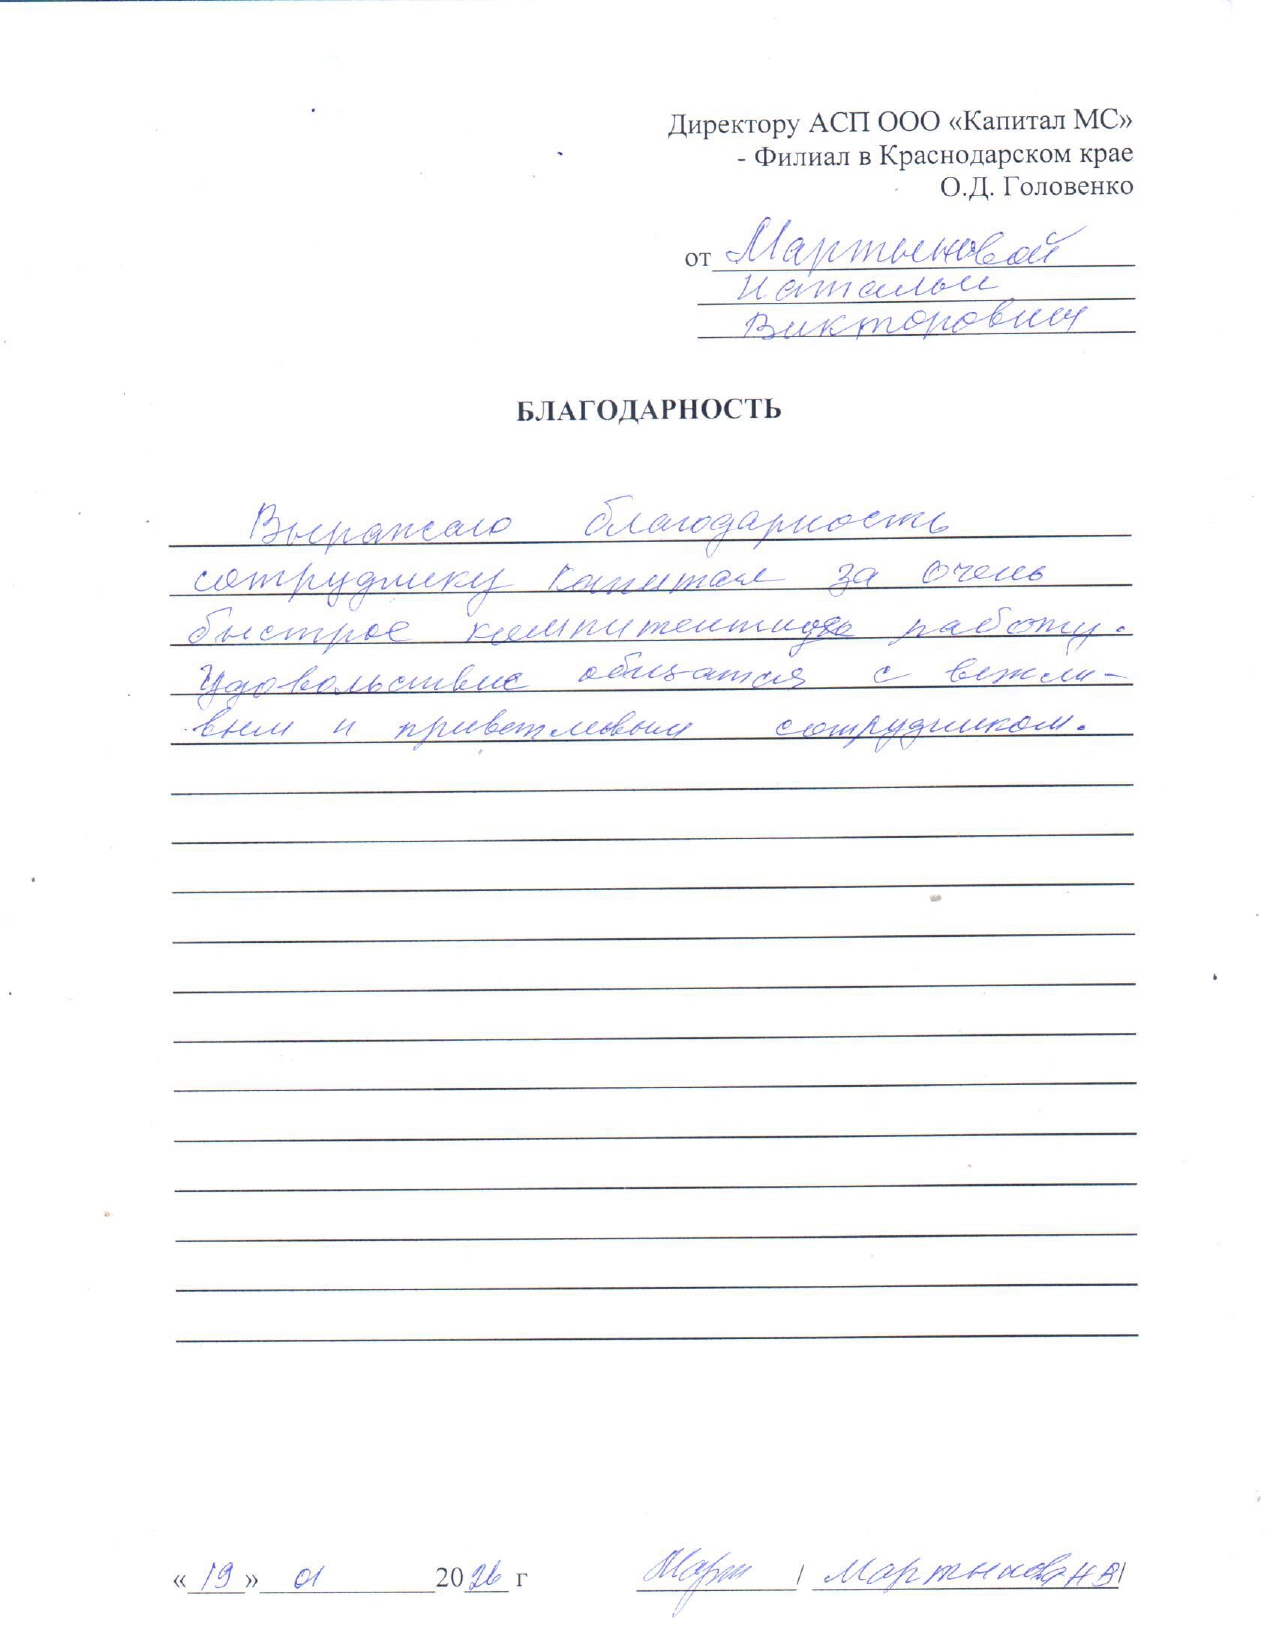 Директору АСП ООО «Капитал МС»
- Филиал в Краснодарском крае
О.Д. Головенко
от Мартыновой
Натальи
Викторовны
БЛАГОДАРНОСТЬ
Выражаю благодарность
сотруднику Капитал за очень
быстрое компитентную работу.
Удовольствие общатся с вежли-
вым и приветливым сотрудником.
«19» 01 2026 г Март / Мартынова Н В/